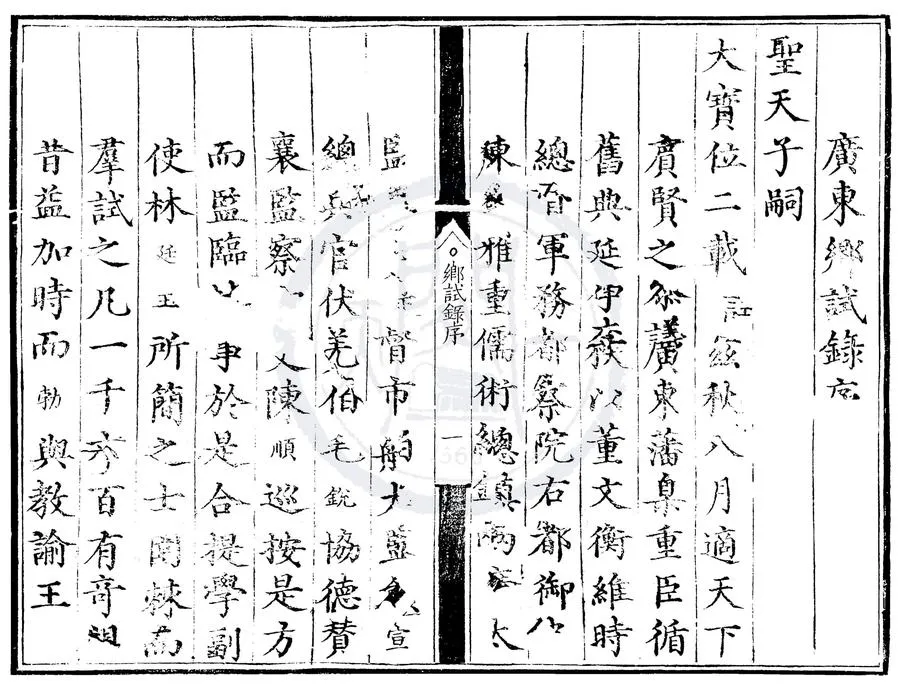 廣東鄉試錄序
聖天子嗣
大寶位二載 茲秋八月適天下
賓賢之 議廣東藩臬重臣循
舊典延 以董文衡維時
總督軍務都察院右都御
陳 雅重儒術總鎮兩 太
鄉試錄序
一
監 督市舶太監 宣
總兵官伏羌伯毛銳協德贊
襄監察 陳順巡按是方
而監臨 事於是合提學副
使林廷玉所簡之士 棘而
羣試之凡一千六百有奇
昔益加時而勃與教諭王